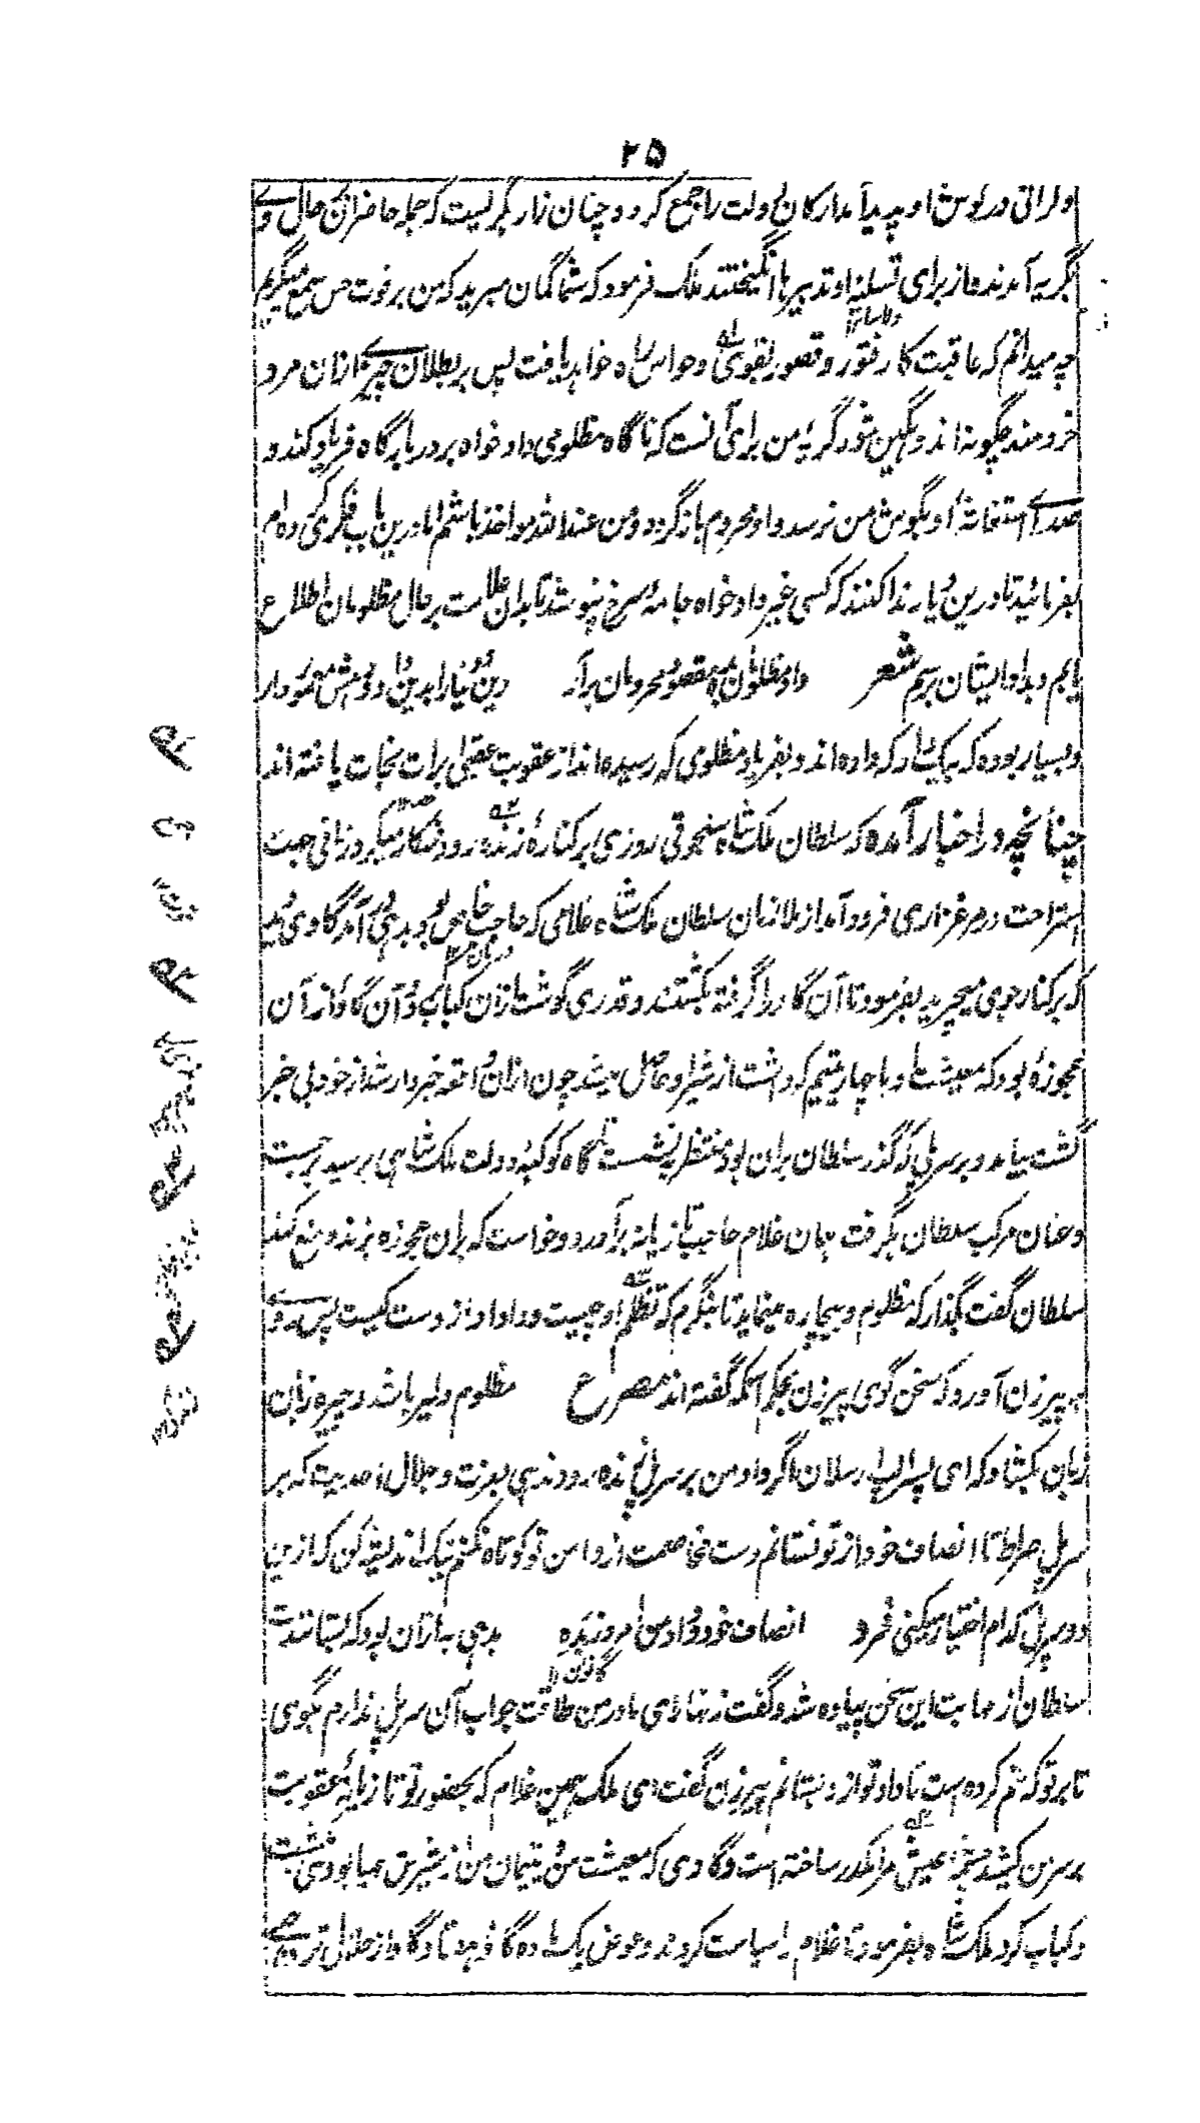 ۲۵
او گرانی در گوش او پدید آمد ارکان دولت را جمع کرد و چنان زار بگریست که جمله حاضران بر حال وے
بگریه آمدند و از برای تسلیهٔ او تدبیرها انگیختند ملک فرمود که شما گمان مبرید که من بر فوت حس سمع میگریم
چه میدانم که عاقبت کار فتور و قصور بقوی و حواس راه خواهد یافت پس بر بطلان چیزے ازان مرد
خردمند چگونه اندوهگین شود گریهٔ من برای آنست که ناگاه مظلومی داد خواه بر در بارگاه فریاد کند و
صداے استغاثهٔ او بگوش من نرسد و او محروم باز گردد و من عند الله مواخذ باشم اما درین باب فکری کرده ام
بفرمائید تا درین دیار ندا کنند که کسی غیر داد خواه جامهٔ سرخ نپوشد تا بدان علامت بر حال مظلومان اطلاع
یابم و بداد ایشان برسم شعر داد مظلومان بده مقصود محرومان برآر دین و دنیا را بدین دو مشمش معمور دار
و بسیار بوده که بیک داد که داده اند و بفریاد مظلومی که رسیده اند از عقوبت عقبی برات نجات یافته اند
چنانچه در اخبار آمده که سلطان ملک شاه سلجوقی روزی بر کنارهٔ زنده رود شکار میکرد زمانی جهت
استراحت در مرغزاری فرود آمد از ملازمان سلطان ملک شاه غلامی که حاجب خاص بود بدهی در آمد گاوی دید
که بر کنار جوی میچرید بفرمود تا آن گاو را گرفته بکشتند و قدری گوشت ازان کباب کرد و آن گاو از آن
عجوزهٔ بود که معیشت او با چهار یتیم که داشت از شیر او حاصل میشد چون ازان واقعه خبردار شد از خود بی خبر
گشت بیامد و بر سر پلی که گذر سلطان بران بود منتظر بنشست تا گاه کوکبهٔ دولت ملک شاهی برسید برجست
و عنان مرکب سلطان بگرفت همان غلام حاجب تازیانه برآورد و خواست که بران عجوزه بزند و منع کند
سلطان گفت بگذار که مظلوم و بیچاره مینماید تا بنگرم که تظلم او چیست و داد او از دست کیست پس روے
به پیر زن آورد که سخن گوی پیر زن بحکم آنکه گفته اند مصرع مظلوم دلیر باشد و چیره زبان
زبان بکشاد که ای پسر الپ ارسلان اگر داد من بر سر پل زنده رود ندهی بعزت و جلال احدیت که بر
سر پل صراط تا انصاف خود از تو نستانم دست مخاصمت از دامن تو کوتاه نکنم نیک اندیشه کن که ازین
دو سر پل کدام اختیار میکنی فرد انصاف خود و داد من امروز بده بدهی به ازان بود که بستانندت
سلطان از مهابت این سخن پیاده شد و گفت زنهار ای مادر من طاقت جواب آن سر پل ندارم بگوی
تا بر تو که ستم کرده است تا داد تو از و بستانم پیرزن گفت ای ملک همین غلام که بحضور تو تازیانهٔ عقوبت
بر سر من کشید عیش مرا مکدر ساخته است و گاوی که معیشت من و یتیمان من از شیرش مهیا بودی بکشت
و کباب کرد ملک شاه بفرمود تا غلام را سیاست کردند و عوض یک ماده گاو هفتاد گاو از حلال ترین